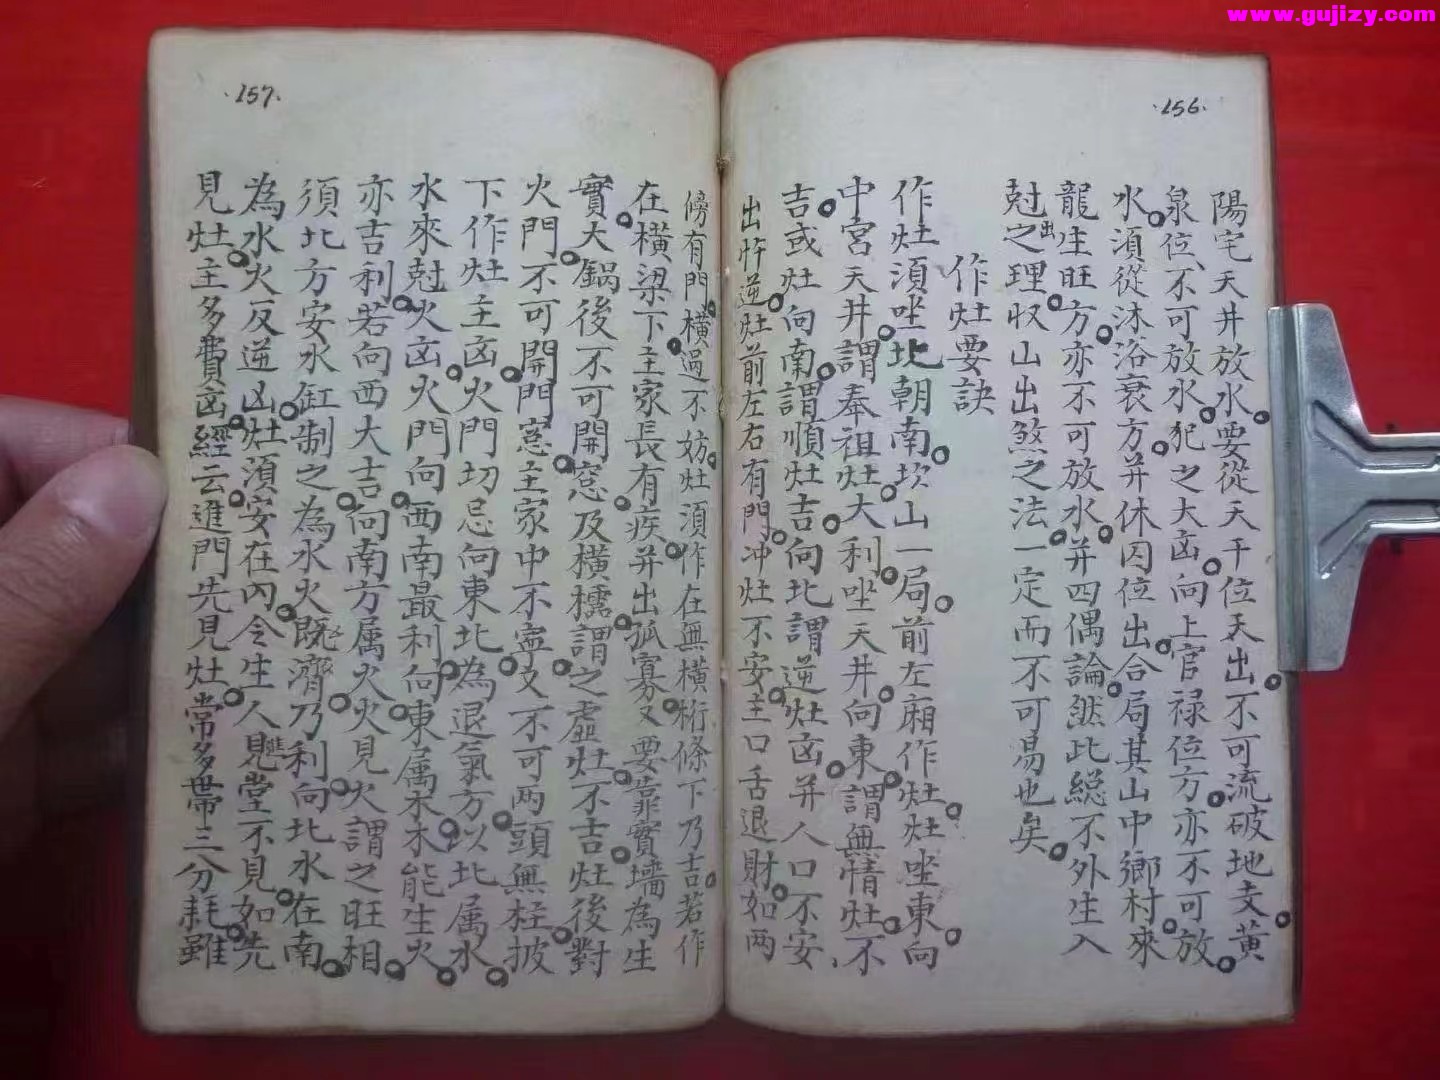 www.gujizy.com
·156.
陽宅天井放水。要從天干位天出。不可流破地支。黃
泉位。不可放水。犯之大凶。向上官禄位方。亦不可放
水。須從沐浴衰方。并休囚位出。合局其山中鄉村。來
龍生旺方。亦不可放水。并四偶論。然此総不外生入
尅出之理。收山出煞之法。一定而不可易也矣。
作灶要訣
作灶須坐北朝南。坎山一局。前左廂作灶。灶坐東向
中宮天井。謂奉祖灶。大利。坐天井。向東。謂無情灶。不
吉。或灶向南。謂順灶吉。向北。謂逆灶凶。并人口不安、
出忤逆。灶前左右有門。冲灶不安。主口舌退財。如两
·157.
傍有門。橫過不妨。灶須作在無橫桁條下乃吉。若作
在橫梁下。主家長有疾。并出孤寡。又要靠實墙為生
實。大鍋後不可開窓。及橫檽。謂之虛灶。不吉。灶後對
火門。不可開門窓。主家中不寕。又不可两頭無柱。披
下作灶。主凶。火門切忌向東北。為退氣方。以北属水。
水來尅火。凶。火門向西南最利。向東属木。木能生火。
亦吉利。若向西大吉。向南方属火。火見火。謂之旺相。
須北方安水缸制之。為水火既濟。乃利。向北水。在南。
為水火反逆凶。灶須安在內。令生人進見堂。不見如先
見灶。主多費凶。經云。進門先見灶。常多帶三分耗。雖